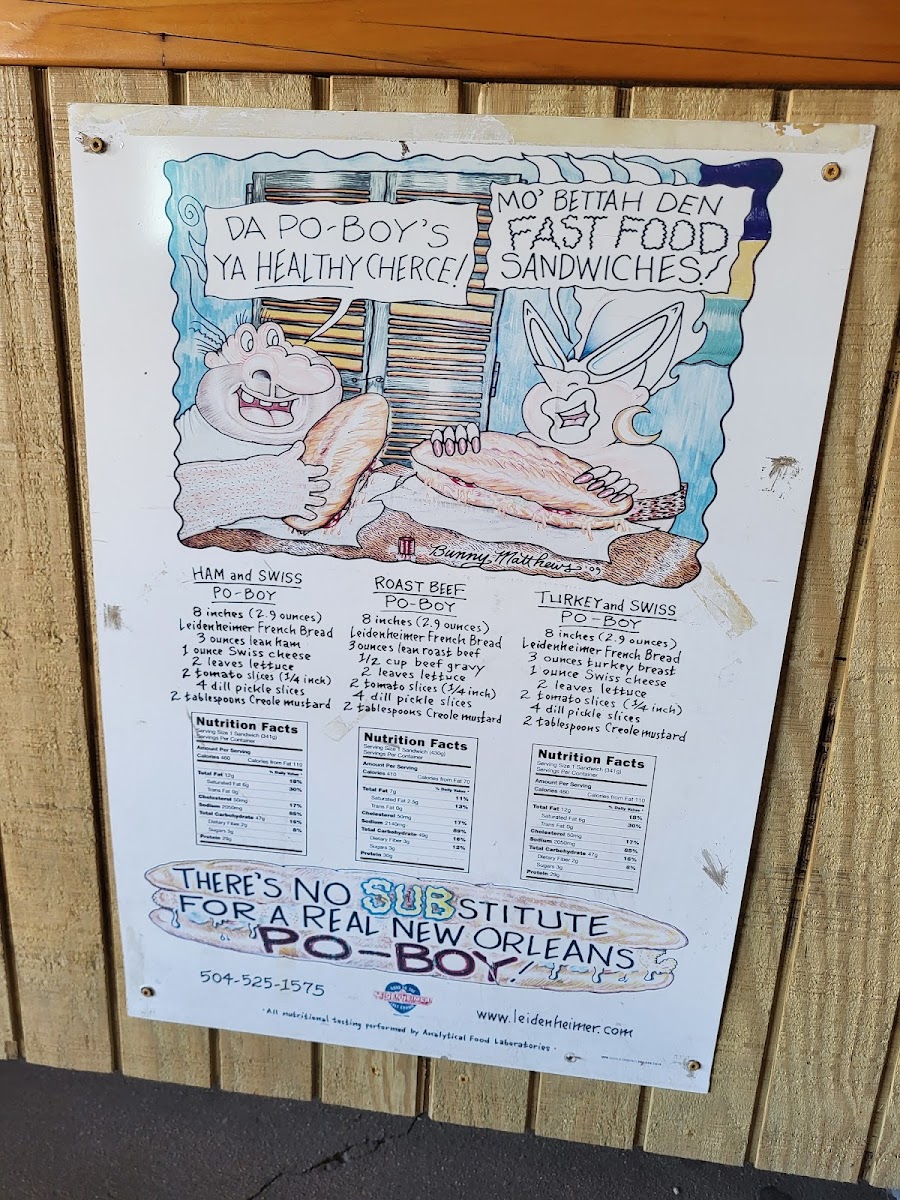 DA PO-BOY'S
YA HEALTHY CHERCE!
MO' BETTAH DEN
FAST FOOD
SANDWICHES!
Bunny Matthews '09
HAM and SWISS
PO-BOY
8 inches (2.9 ounces)
Leidenheimer French Bread
3 ounces lean ham
1 ounce Swiss cheese
2 leaves lettuce
2 tomato slices (1/4 inch)
4 dill pickle slices
2 tablespoons Creole mustard
Nutrition Facts
Serving Size 1 Sandwich (341g)
Servings Per Container
Amount Per Serving
Calories 460 Calories from Fat 110
% Daily Value *
Total Fat 12g 18%
Saturated Fat 6g 30%
Trans Fat 0g
Cholesterol 50mg 17%
Sodium 2050mg 85%
Total Carbohydrate 47g 16%
Dietary Fiber 2g 8%
Sugars 3g
Protein 29g
ROAST BEEF
PO-BOY
8 inches (2.9 ounces)
Leidenheimer French Bread
3 ounces lean roast beef
1/2 cup beef gravy
2 leaves lettuce
2 tomato slices (1/4 inch)
4 dill pickle slices
2 tablespoons Creole mustard
Nutrition Facts
Serving Size 1 Sandwich (430g)
Servings Per Container
Amount Per Serving
Calories 410 Calories from Fat 70
% Daily Value *
Total Fat 7g 11%
Saturated Fat 2.5g 13%
Trans Fat 0g
Cholesterol 50mg 17%
Sodium 2140mg 89%
Total Carbohydrate 49g 16%
Dietary Fiber 3g 12%
Sugars 3g
Protein 30g
TURKEY and SWISS
PO-BOY
8 inches (2.9 ounces)
Leidenheimer French Bread
3 ounces turkey breast
1 ounce Swiss cheese
2 leaves lettuce
2 tomato slices (1/4 inch)
4 dill pickle slices
2 tablespoons Creole mustard
Nutrition Facts
Serving Size 1 Sandwich (341g)
Servings Per Container
Amount Per Serving
Calories 460 Calories from Fat 110
% Daily Value *
Total Fat 12g 18%
Saturated Fat 6g 30%
Trans Fat 0g
Cholesterol 50mg 17%
Sodium 2050mg 85%
Total Carbohydrate 47g 16%
Dietary Fiber 2g 8%
Sugars 3g
Protein 29g
THERE'S NO SUBSTITUTE
FOR A REAL NEW ORLEANS
PO-BOY!
504-525-1575
www.leidenheimer.com
· All nutritional testing performed by Analytical Food Laboratories ·